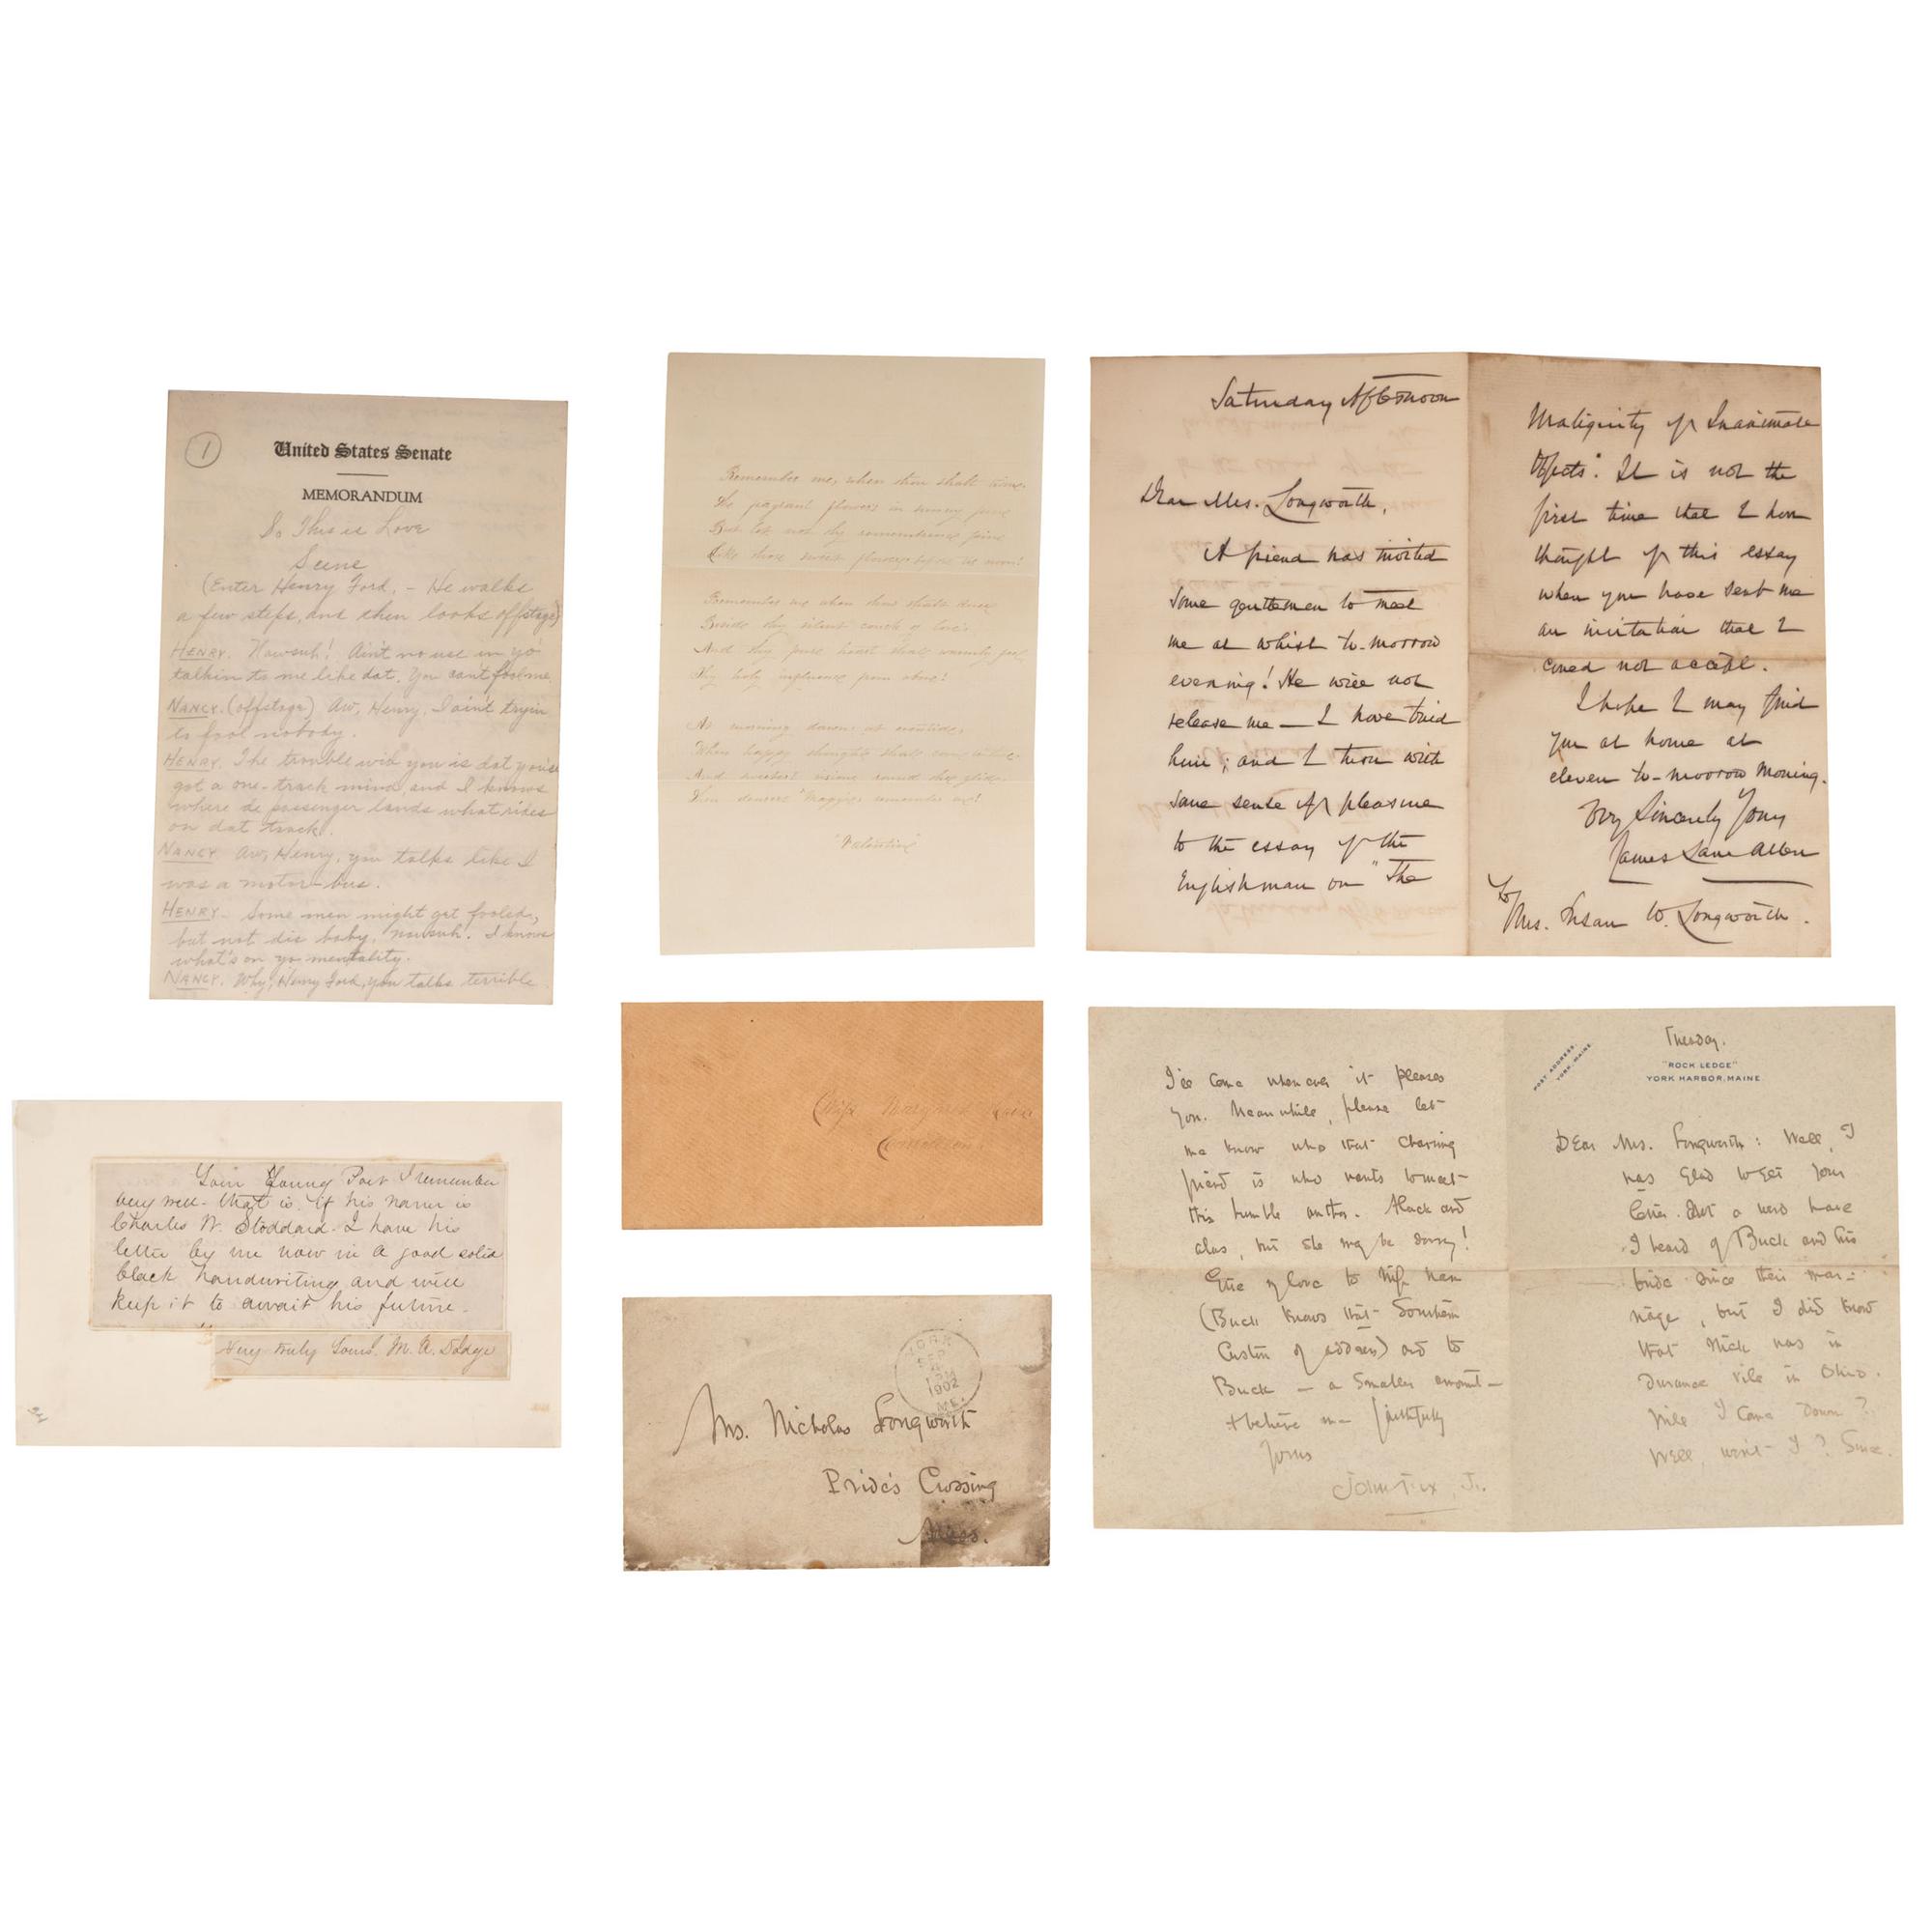 1
United States Senate
MEMORANDUM
So This is Love
Scene
(Enter Henry Ford, - He walks
a few steps, and then looks offstage)
HENRY. Nawsuh! Ain't no use in yo
talkin to me like dat. You cant fool me.
NANCY. (offstage) Aw, Henry, I ain't tryin
to fool nobody.
HENRY. The trouble wid you is dat you'se
got a one-track mind, and I knows
where de passenger lands what rides
on dat track.
NANCY. Aw, Henry, you talks like I
was a motor-bus.
HENRY - Some men might get fooled,
but not dis baby, nawsuh! I knows
what's on yo mentality.
NANCY. Why, Henry Ford, you talks terrible
Your Young Poet I remember
very well - that is. if his name is
Charles W. Stoddard. I have his
letter by me now in a good solid
black handwriting and will
keep it to await his future.
Very truly Yours. M. A. Dodge
Remember me, when thou shalt
pagent flowers in sunny
But let not thy remembrance
Like those sweet flowers before
Remember me when thou shalt
thy silent couch
And thy pure heart shall warmly feel
holy influence from above!
As morning dawns at eventide,
When happy thoughts shall
And
remember me!
"Valentine"
Miss
Mrs. Nicholas Longworth
Pride's Crossing
Mass.
YORK
1902
ME.
Saturday Afternoon
Dear Mrs. Longworth,
A friend has invited
some gentlemen to meet
me at whist to-morrow
evening! He will not
release me — I have tried
him; and I turn with
some sense of pleasure
to the essay of the
Englishman on "The
Malignity of Inanimate
Objects". It is not the
first time that I have
thought of this essay
when you have sent me
an invitation that I
could not accept.
I hope I may find
you at home at
eleven to-morrow morning.
Very Sincerely Yours
James Lane Allen
To
Mrs. Susan W. Longworth.
I'll come whenever it pleases
you. Meanwhile, please let
me know who that charming
friend is who wants to meet
this humble author. Alack and
alas, but she may be sorry!
Give my love to
(Buck knows that Southern
Custom of address) and to
Buck — a smaller amount —
+ believe me faithfully
Yours
John Fox, Jr.
Tuesday.
POST ADDRESS,
YORK, MAINE
"ROCK LEDGE"
YORK HARBOR, MAINE
Dear Mrs. Longworth: Well, I
was glad to get your
letter. Not a word have
I heard of Buck and his
bride since their mar-
riage, but I did know
that Nick was in
durance vile in Ohio.
Will I come down?
Well, won't I? Sure.